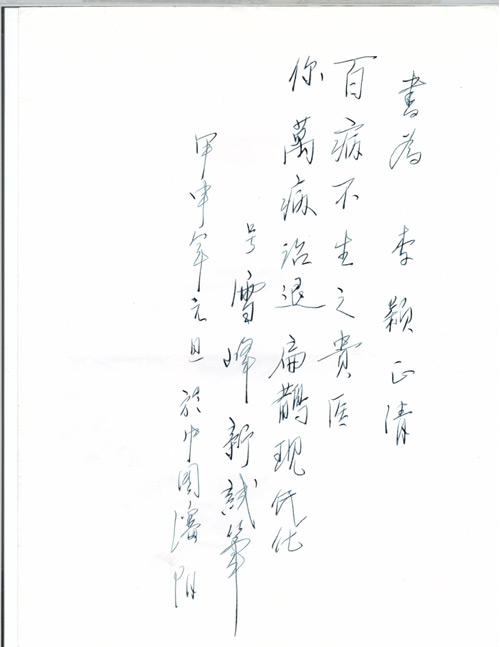 書為 李颖正清
百病不生之貴医
你萬病治退扁鵲現代化
号雪峰新試筆
甲申年元旦於中国瀋阳